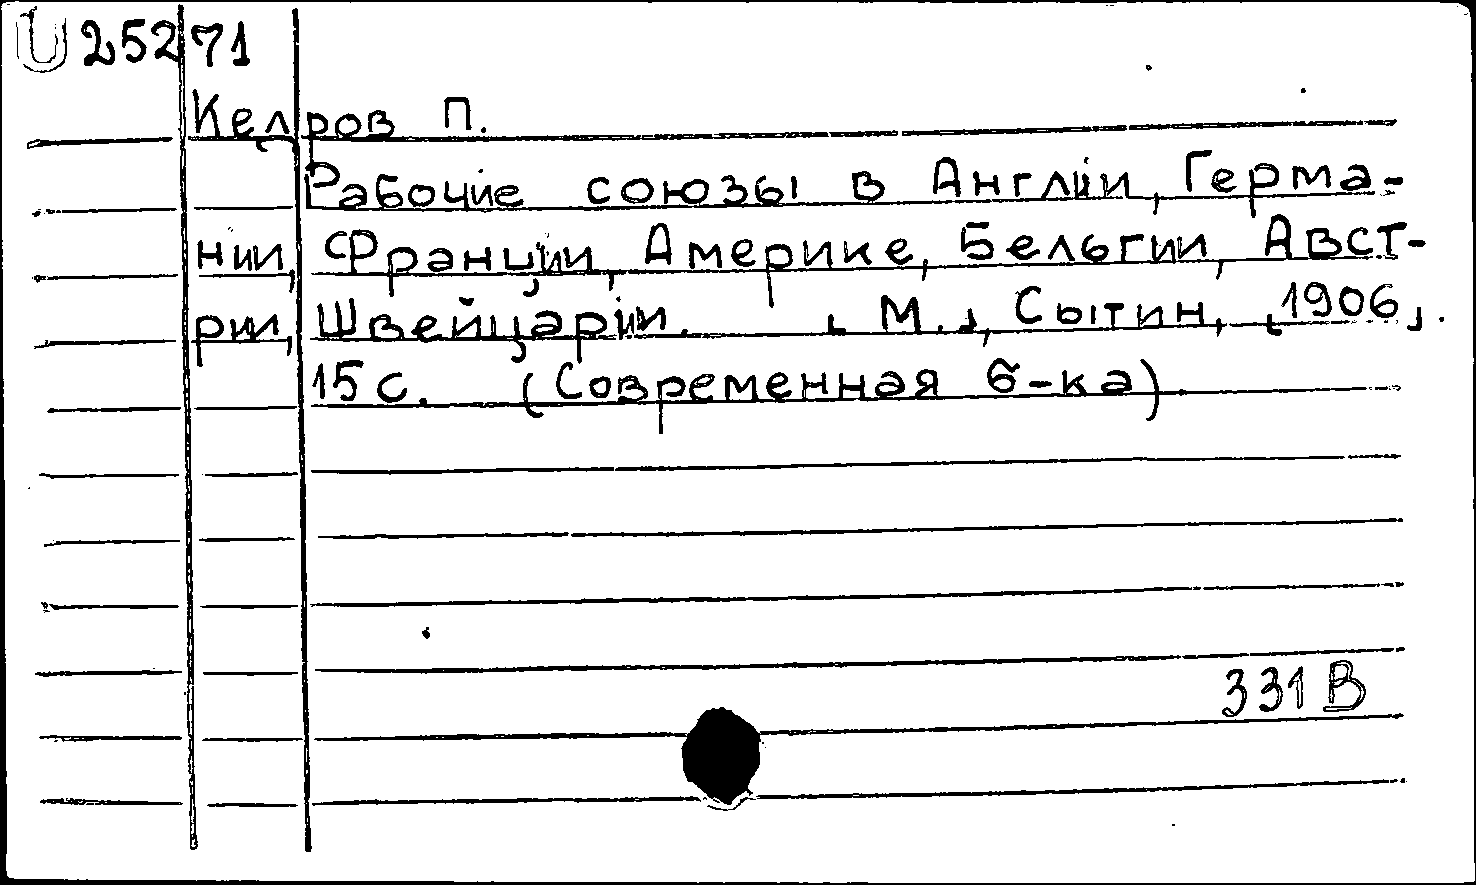 U 25271
Кедров П.
Рабочие союзы в Англии, Герма-
нии, Франции, Америке, Бельгии, Авст-
рии, Швейцарии. [М.], Сытин, [1906].
15 с. (Современная б-ка).
331 В